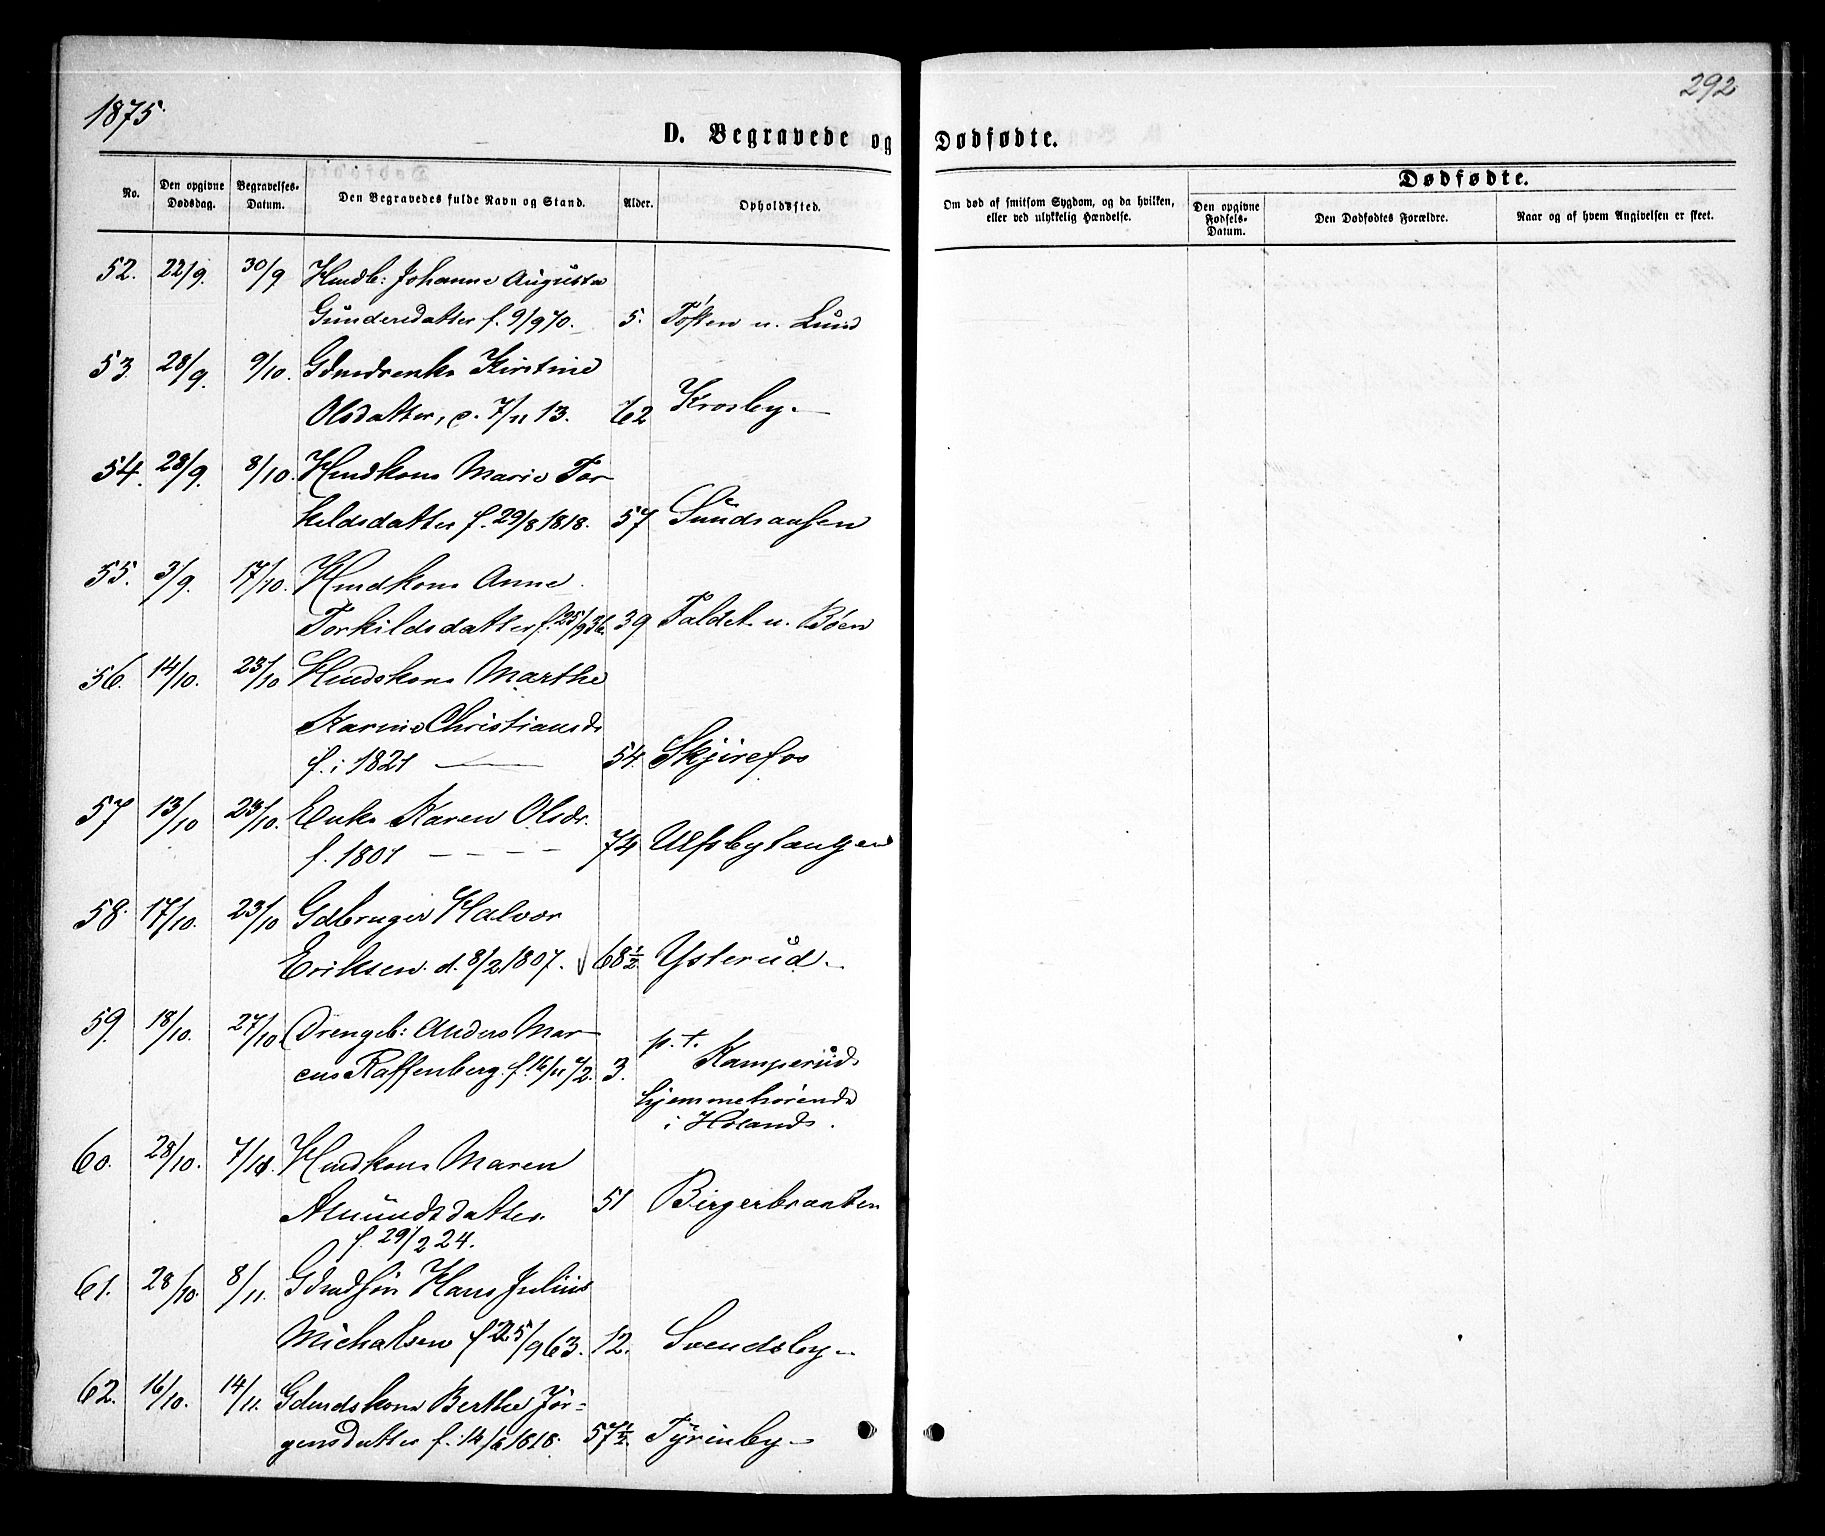 1875.
292
D. Begravede og Dødfødte.
No.
Den opgivne Dødsdag.
Begravelses-Datum.
Den Begravedes fulde Navn og Stand.
Alder.
Opholdssted.
Om død af smitsom Sygdom, og da hvilken, eller ved ulykkelig Hændelse.
Dødfødte.
Den opgivne Fødsels-Datum.
Den Dødfødtes Forældre.
Naar og af hvem Angivelsen er skeet.
52. 22/9. 30/9 Johanne Augusta
Gundersdatter f. 9/9 70. 5. u. Lund
53. 28/9. 9/10. Kirstine
Olsdatter, 7/11 13. 62 Krosby
54. 28/9. 8/10. Hmdkone Marie Tor
kildsdatter f. 29/8 1818. 57 Sundsaasen
55. 3/9. 17/10. Hmdkone Anne
Torkildsdatter f. 25/9 36. 39 Faldet u. Bøen
56. 14/10. 23/10 Hmdskone Marthe
Karine Christiansd.
f. i 1821 54. Skjirefos
57 13/10 23/10. Enke Karen Olsdr.
f. 1801 74 Ulfsbytangen
58. 17/10. 23/10 Gdbruger Halvor
Eriksen. d. 8/2 1807. 68½ Ysterud
59. 18/10. 27/10 Drengeb: Anders Mar
cus Raffenberg. f. 16/11 72. 3. p. t. Kamperud
hjemmehørende
i Høland.
60. 28/10. 7/11. Hmdkone Maren
Amundsdatter. 51 Birgerbraaten
f. 29/2 24.
61. 28/10. 8/11. Gdmdsøn Hans Julius
Michalsen f 25/9 63. 12. Svendsby
62. 16/10. 14/11. Gdmdskone Berthe Jør-
gensdatter f. 1818. 57½. Tyrinby